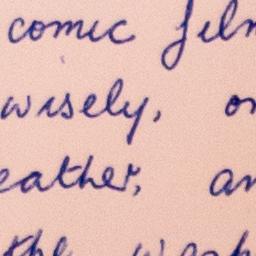 comic film
wisely, on
eather, an
the wash